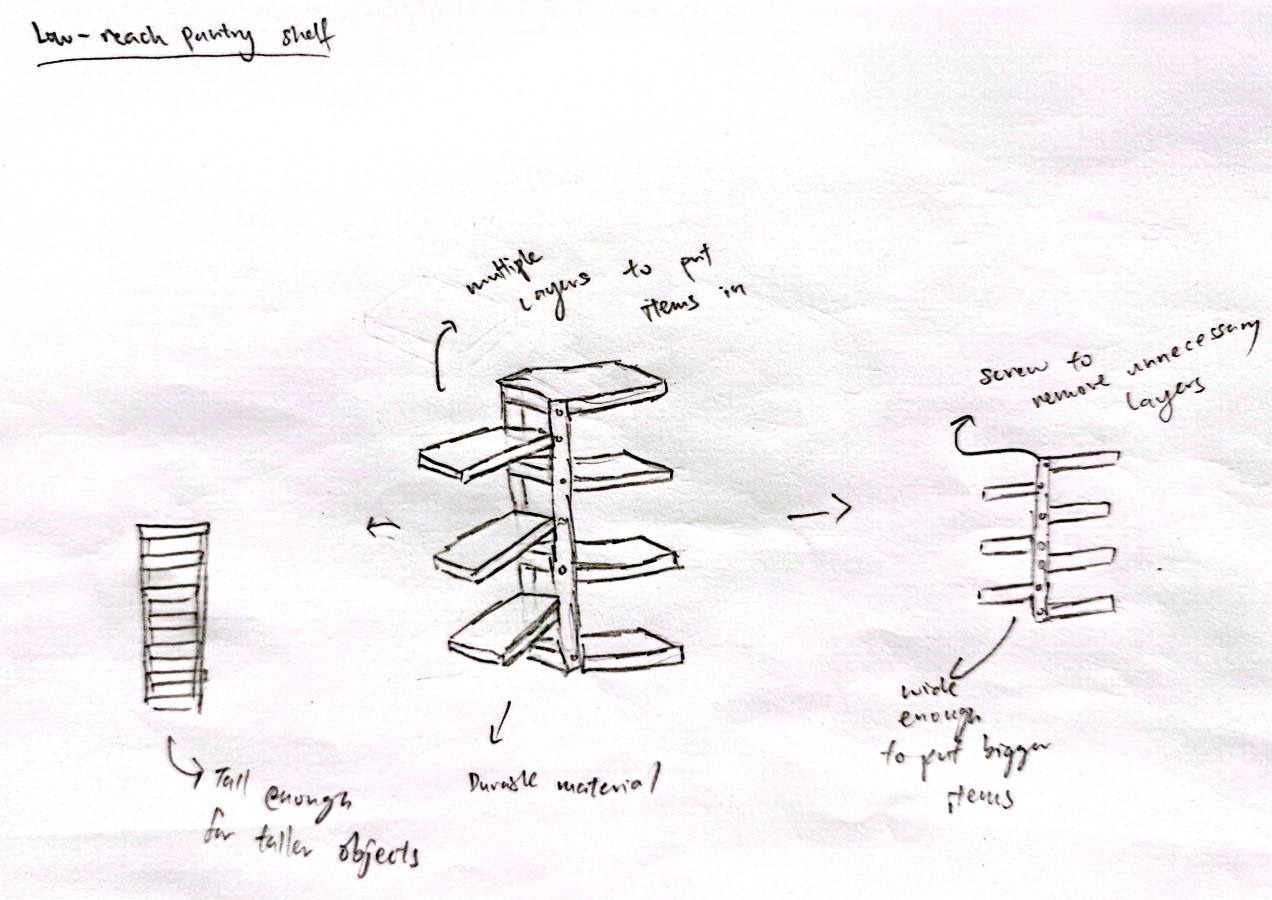 Low-reach pantry shelf
multiple
layers to put
items in
screw to
remove unnecessary
layers
wide
enough
to put bigger
items
Durable material
Tall enough
for taller objects